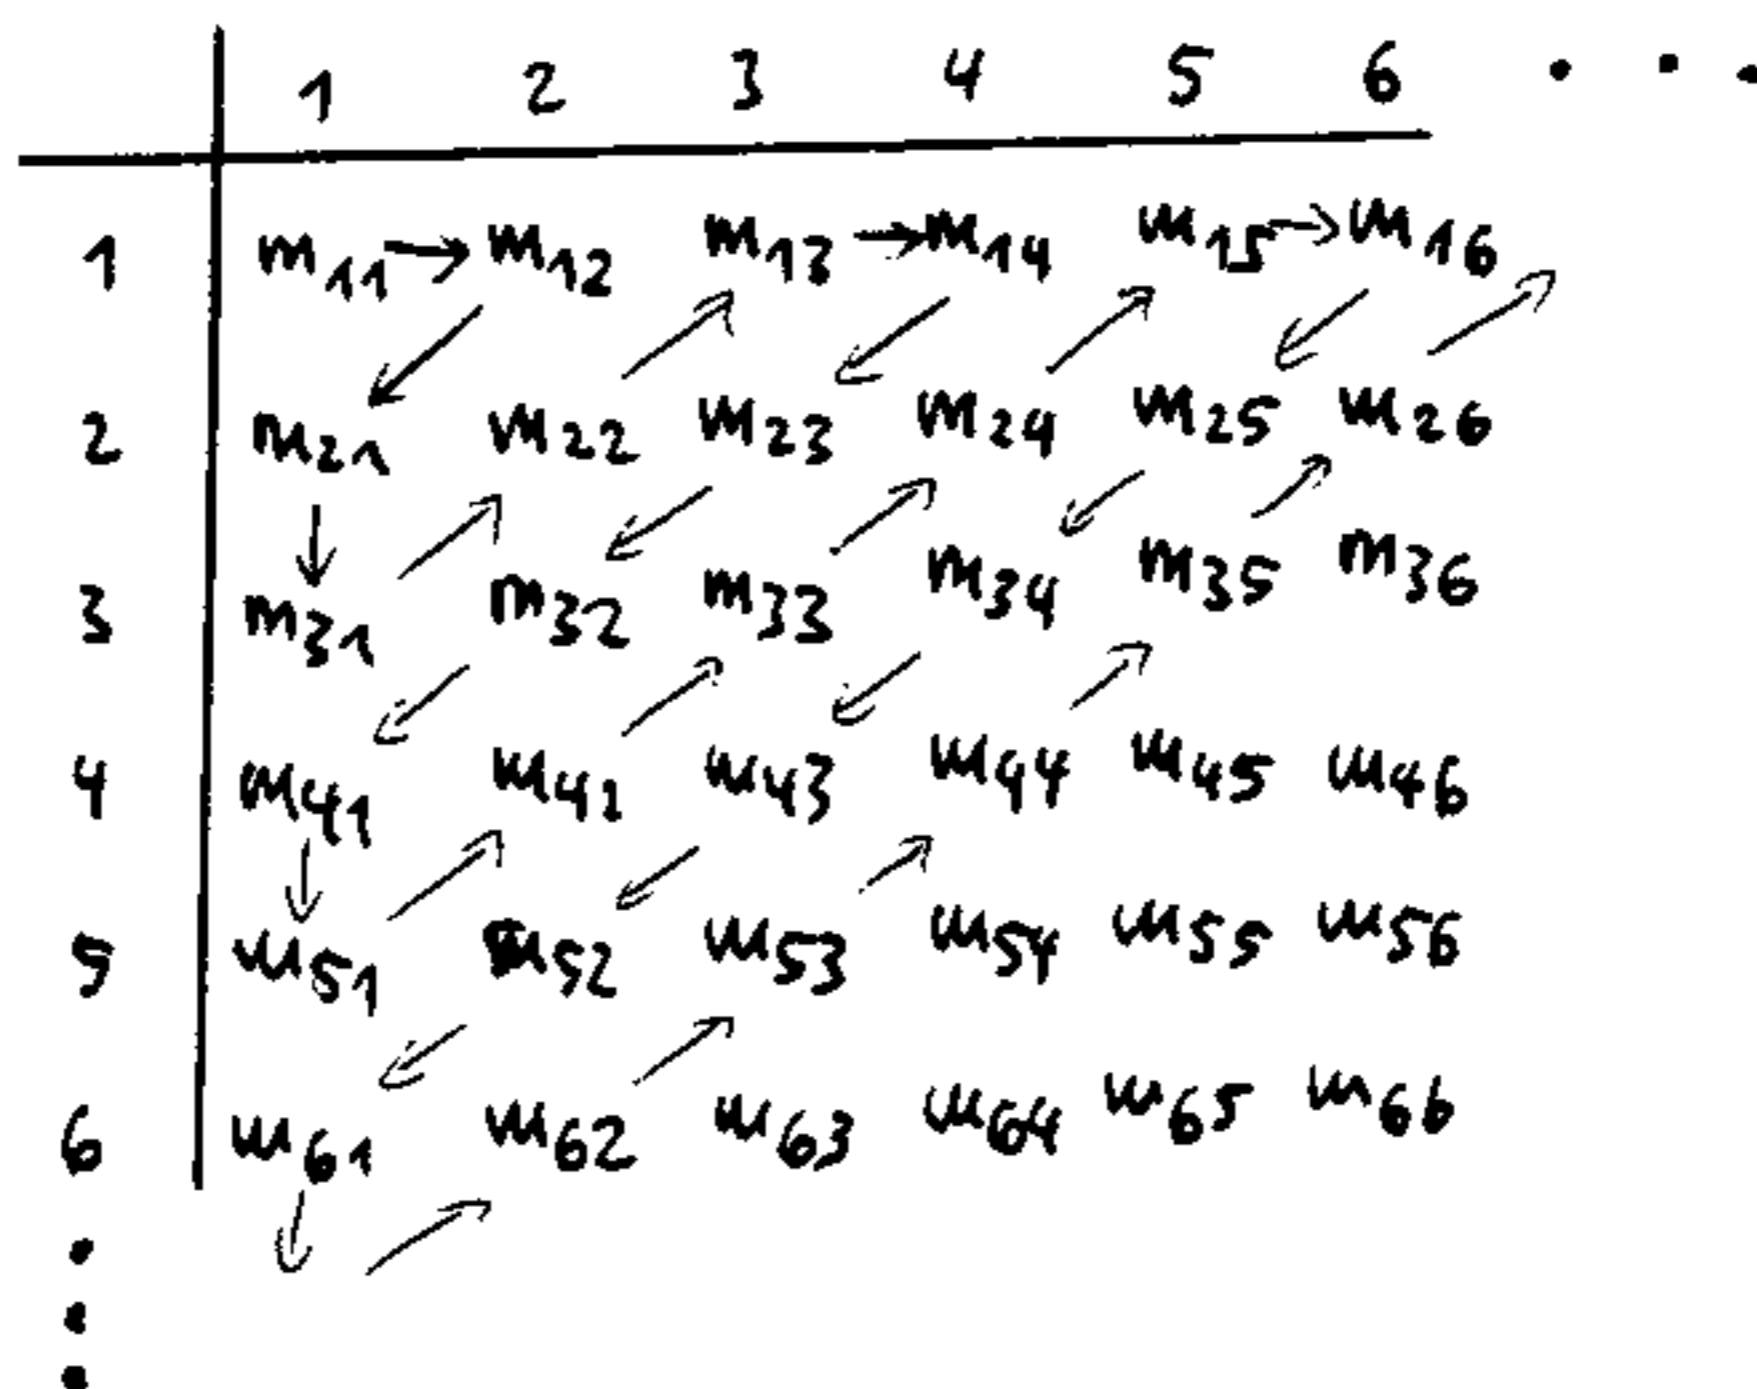 1 2 3 4 5 6 . . .
1 m11 → m12 m13 → m14 m15 → m16
2 m21 m22 m23 m24 m25 m26
3 m31 m32 m33 m34 m35 m36
4 m41 m42 m43 m44 m45 m46
5 m51 m52 m53 m54 m55 m56
6 m61 m62 m63 m64 m65 m66
.
.
.